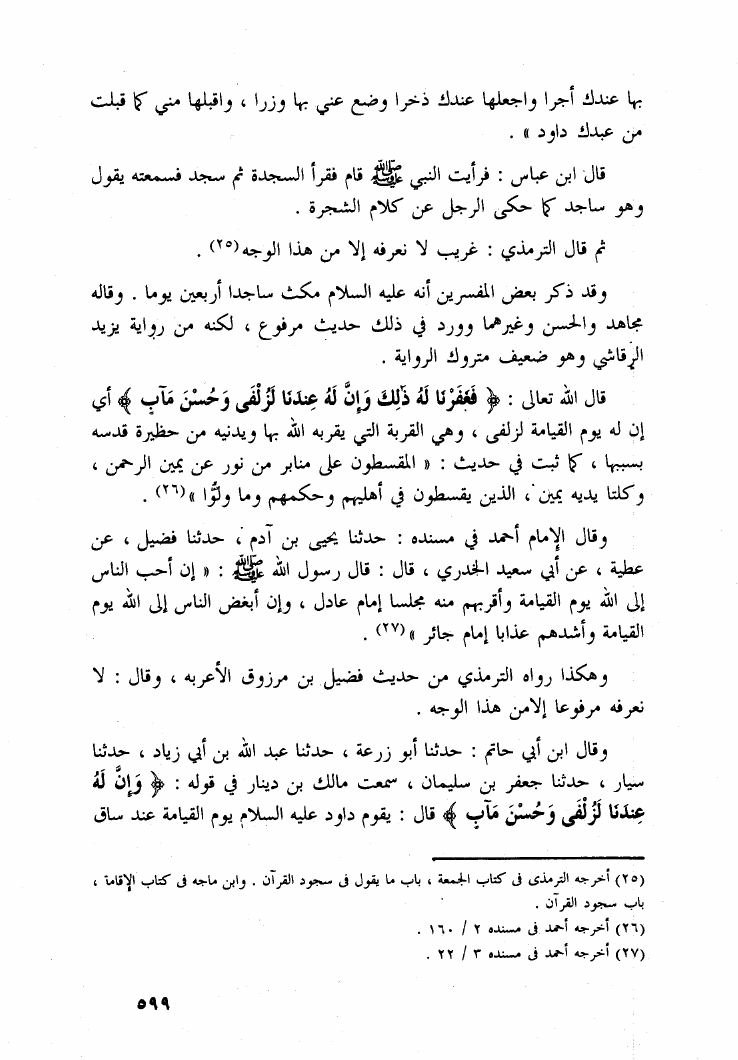 بها عندك أجرا واجعلها عندك ذخرا وضع عني بها وزرا ، واقبلها مني كما قبلت
من عبدك داود » .
قال ابن عباس : فرأيت النبي ﷺ قام فقرأ السجدة ثم سجد فسمعته يقول
وهو ساجد كما حكى الرجل عن كلام الشجرة .
ثم قال الترمذي : غريب لا نعرفه إلا من هذا الوجه(٢٥) .
وقد ذكر بعض المفسرين أنه عليه السلام مكث ساجدا أربعين يوما . وقاله
مجاهد والحسن وغيرهما وورد في ذلك حديث مرفوع ، لكنه من رواية يزيد
الرقاشي وهو ضعيف متروك الرواية .
قال الله تعالى : ﴿ فَغَفَرْنَا لَهُ ذَٰلِكَ وَإِنَّ لَهُ عِندَنَا لَزُلْفَى وَحُسْنَ مَآبٍ ﴾ أي
إن له يوم القيامة لزلفى ، وهي القربة التي يقربه الله بها ويدنيه من حظيرة قدسه
بسببها ، كما ثبت في حديث : « المقسطون على منابر من نور عن يمين الرحمن ،
وكلتا يديه يمين ، الذين يقسطون في أهليهم وحكمهم وما ولُّوا »(٢٦) .
وقال الإمام أحمد في مسنده : حدثنا يحيى بن آدم ، حدثنا فضيل ، عن
عطية ، عن أبي سعيد الخدري ، قال : قال رسول الله ﷺ : « إن أحب الناس
إلى الله يوم القيامة وأقربهم منه مجلسا إمام عادل ، وإن أبغض الناس إلى الله يوم
القيامة وأشدهم عذابا إمام جائر »(٢٧) .
وهكذا رواه الترمذي من حديث فضيل بن مرزوق الأعربه ، وقال : لا
نعرفه مرفوعا إلامن هذا الوجه .
وقال ابن أبي حاتم : حدثنا أبو زرعة ، حدثنا عبد الله بن أبي زياد ، حدثنا
سيار ، حدثنا جعفر بن سليمان ، سمعت مالك بن دينار في قوله : ﴿ وَإِنَّ لَهُ
عِندَنَا لَزُلْفَى وَحُسْنَ مَآبٍ ﴾ قال : يقوم داود عليه السلام يوم القيامة عند ساق
(٢٥) أخرجه الترمذى فى كتاب الجمعة ، باب ما يقول فى سجود القرآن . وابن ماجه فى كتاب الإقامة ،
باب سجود القرآن .
(٢٦) أخرجه أحمد فى مسنده ٢ / ١٦٠ .
(٢٧) أخرجه أحمد فى مسنده ٣ / ٢٢ .
٥٩٩